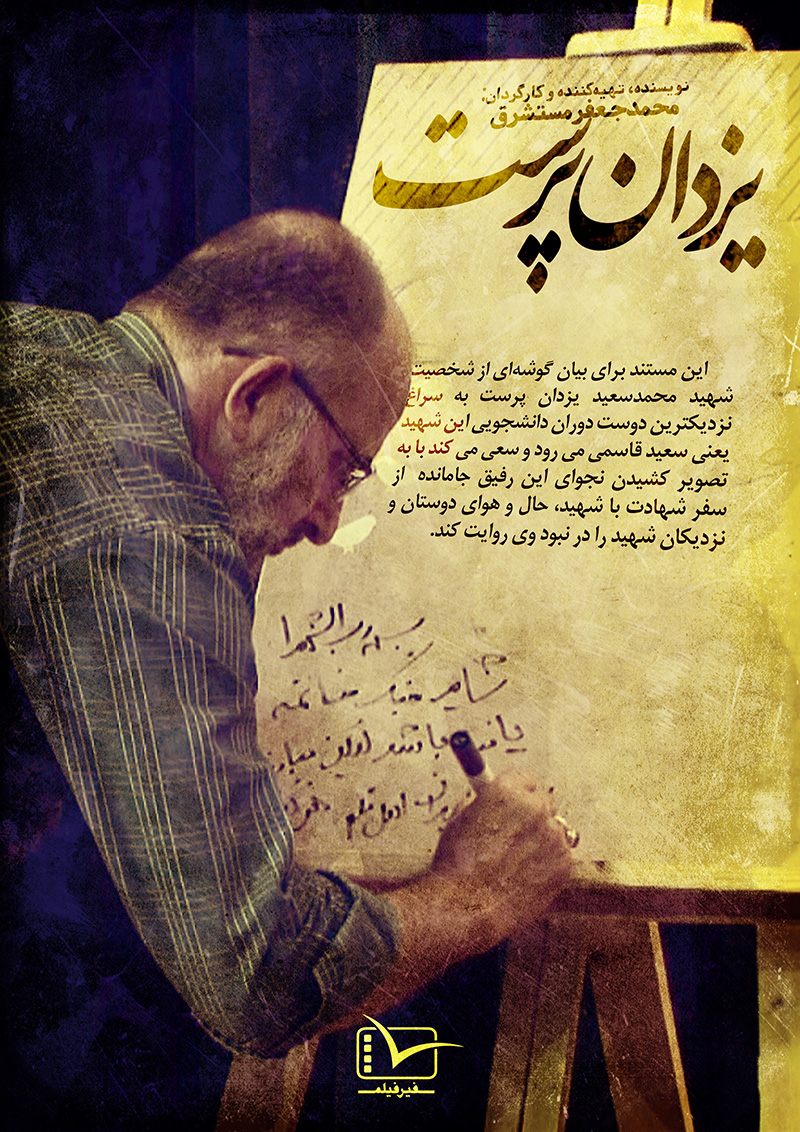 نویسنده، تهیه‌کننده و کارگردان:
محمدجعفر مستشرق
یزدان پرست
این مستند برای بیان گوشه‌ای از شخصیت
شهید محمدسعید یزدان پرست به سراغ
نزدیکترین دوست دوران دانشجویی این شهید
یعنی سعید قاسمی می رود و سعی می کند با به
تصویر کشیدن نجوای این رفیق جامانده از
سفر شهادت با شهید، حال و هوای دوستان و
نزدیکان شهید را در نبود وی روایت کند.
بسم رب الشهدا
شاید جنگ خاتمه
یافته باشد
فیرفیلم